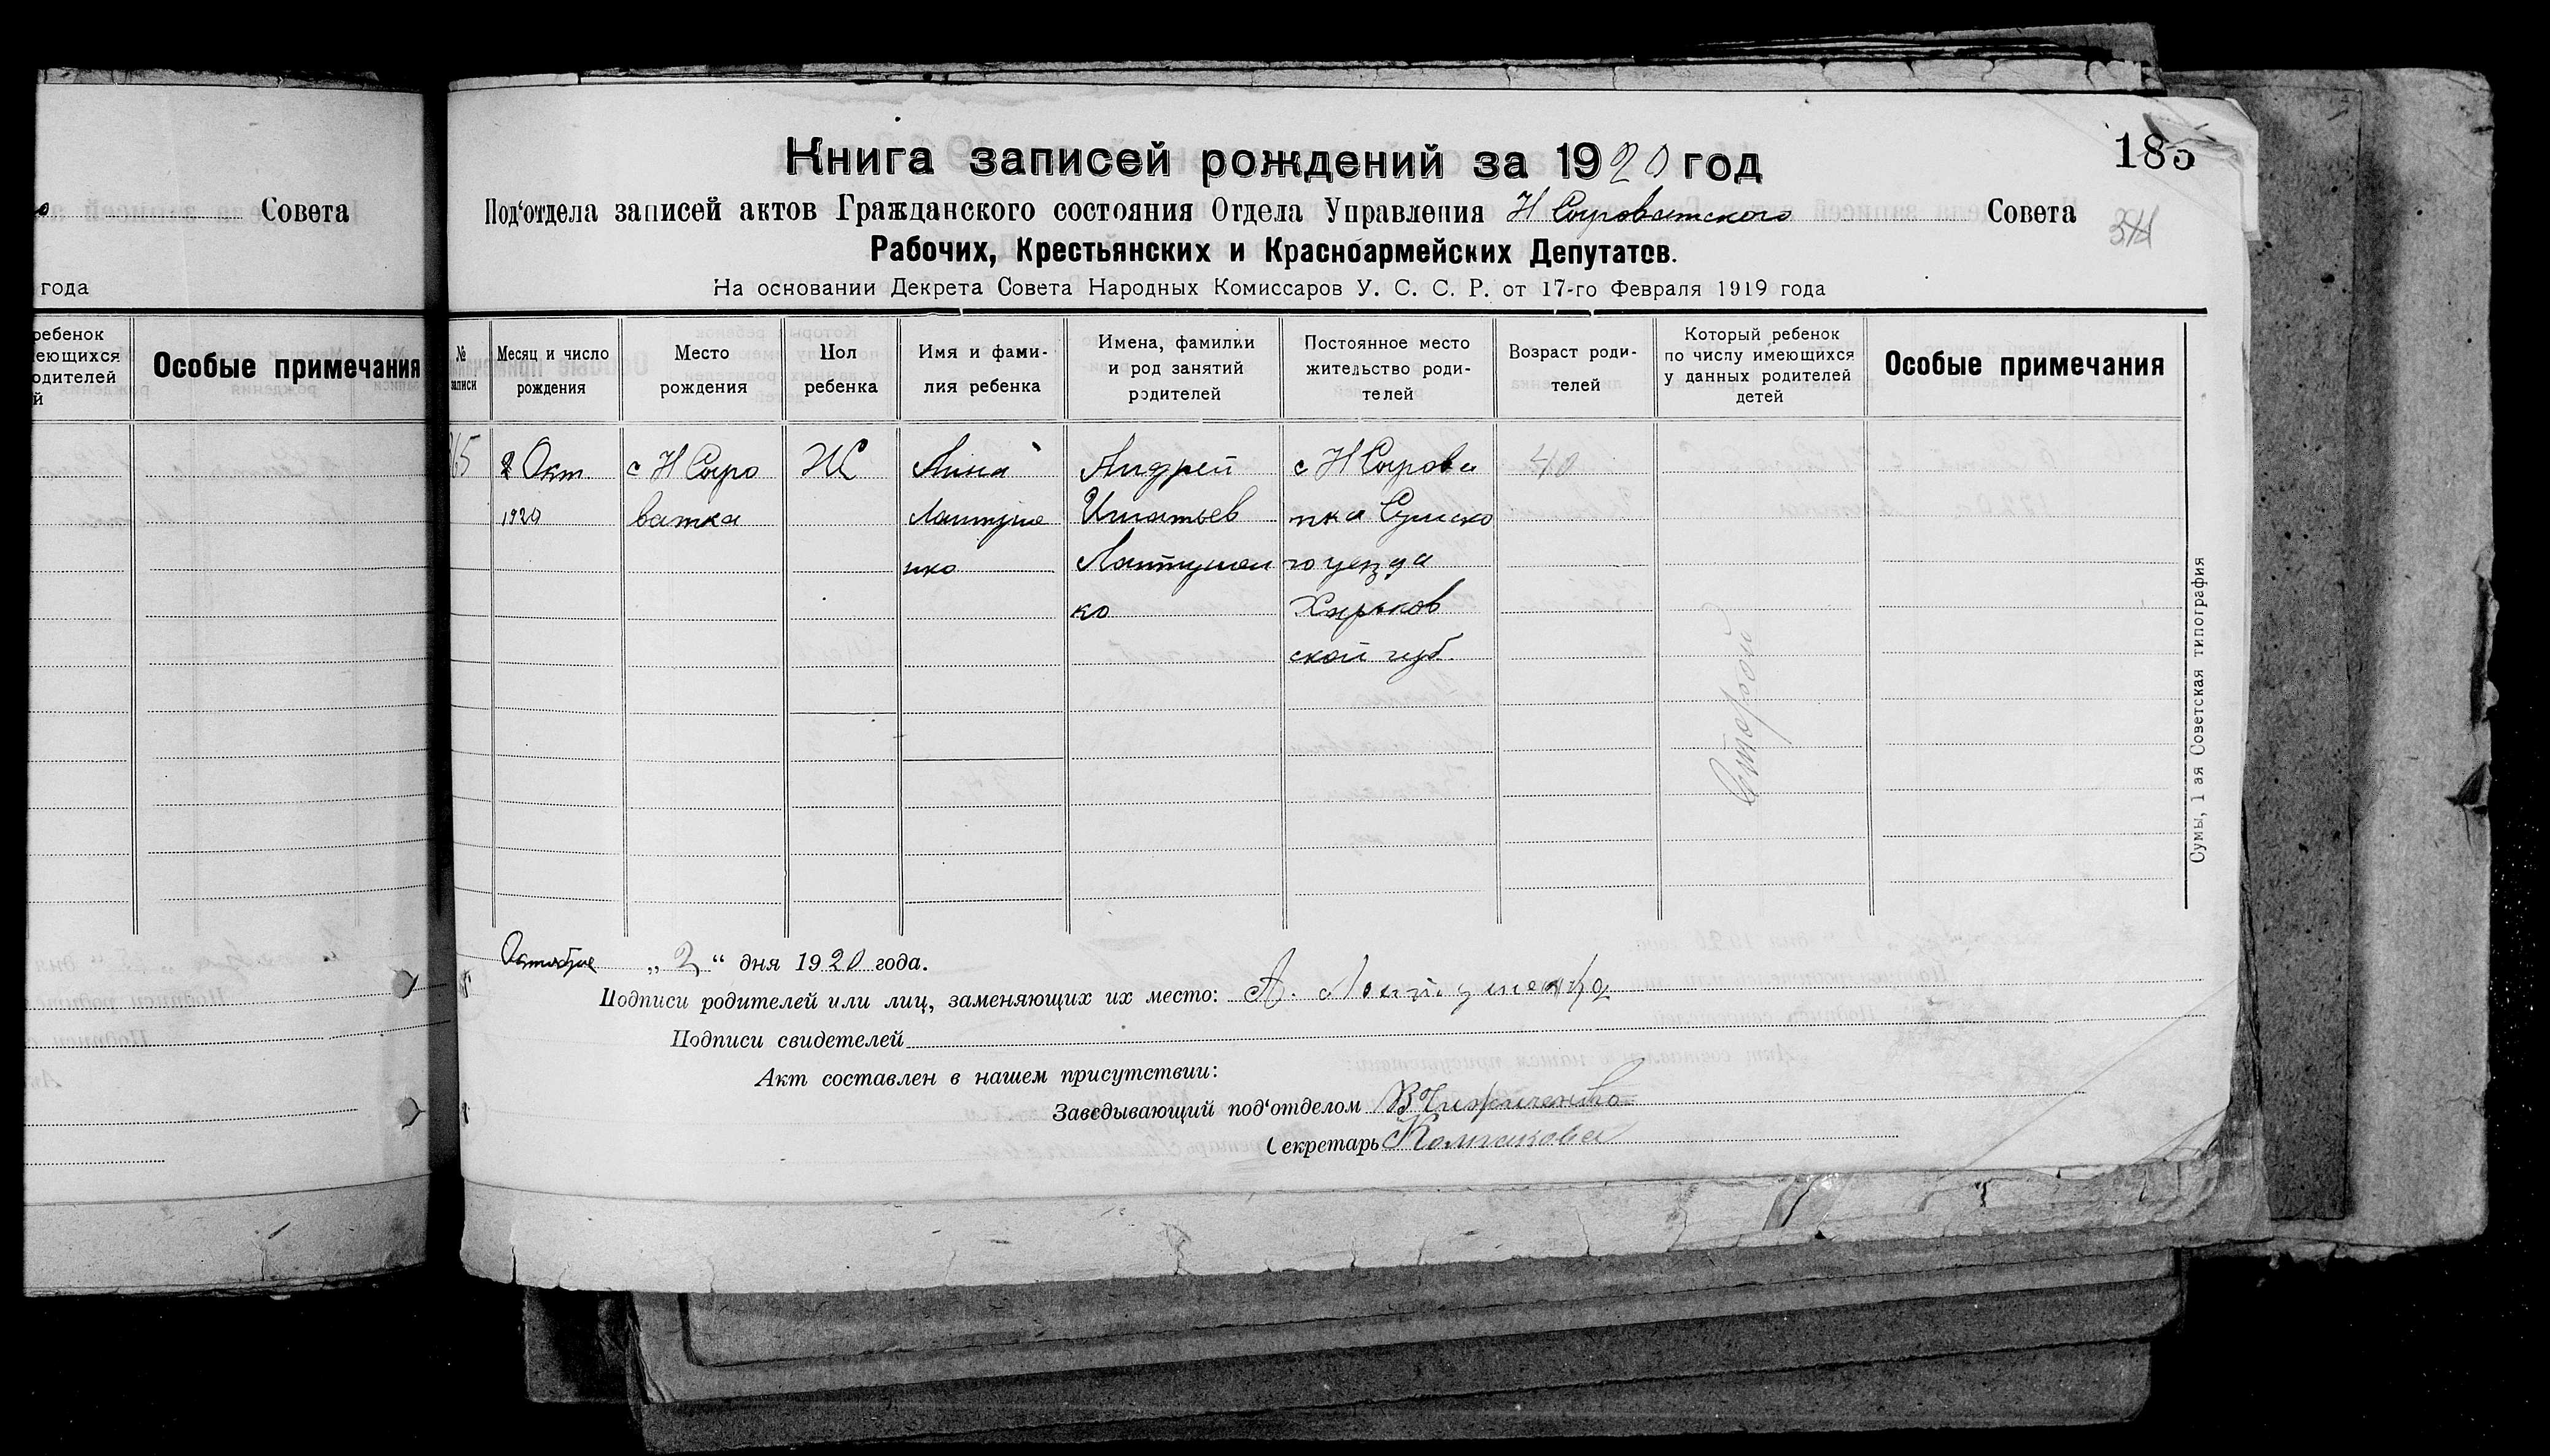 Совета
года
ребенок
еющихся
одителей
й
Особые примечания
Книга записей рождений за 1920 год
185
Под‘отдела записей актов Гражданского состояния Отдела Управления Н Сыроватского Совета
Рабочих, Крестьянских и Красноармейских Депутатов.
На основании Декрета Совета Народных Комиссаров У. С. С. Р. от 17-го Февраля 1919 года
№ записи
Месяц и число рождения
Место рождения
Пол ребенка
Имя и фами-
лия ребенка
Имена, фамилии
и род занятий
родителей
Постоянное место
жительство роди-
телей
Возраст роди-
телей
Который ребенок
по числу имеющихся
у данных родителей
детей
Особые примечания
65
2 Окт.
1920
с Н Сыро
ватка
Ж
Анна
Лантуше
нко
Андрей
Игнатьев
Лантушен
ко
с Н Сырова
тка Сумско
го уезда
Харьков
ской губ.
40
Второй
Октября „ 2 “ дня 1920 года.
Подписи родителей или лиц, заменяющих их место: А. Лантушенко
Подписи свидетелей
Акт составлен в нашем присутствии:
Заведывающий под‘отделом
Секретарь
Сумы, 1 ая Советская типография